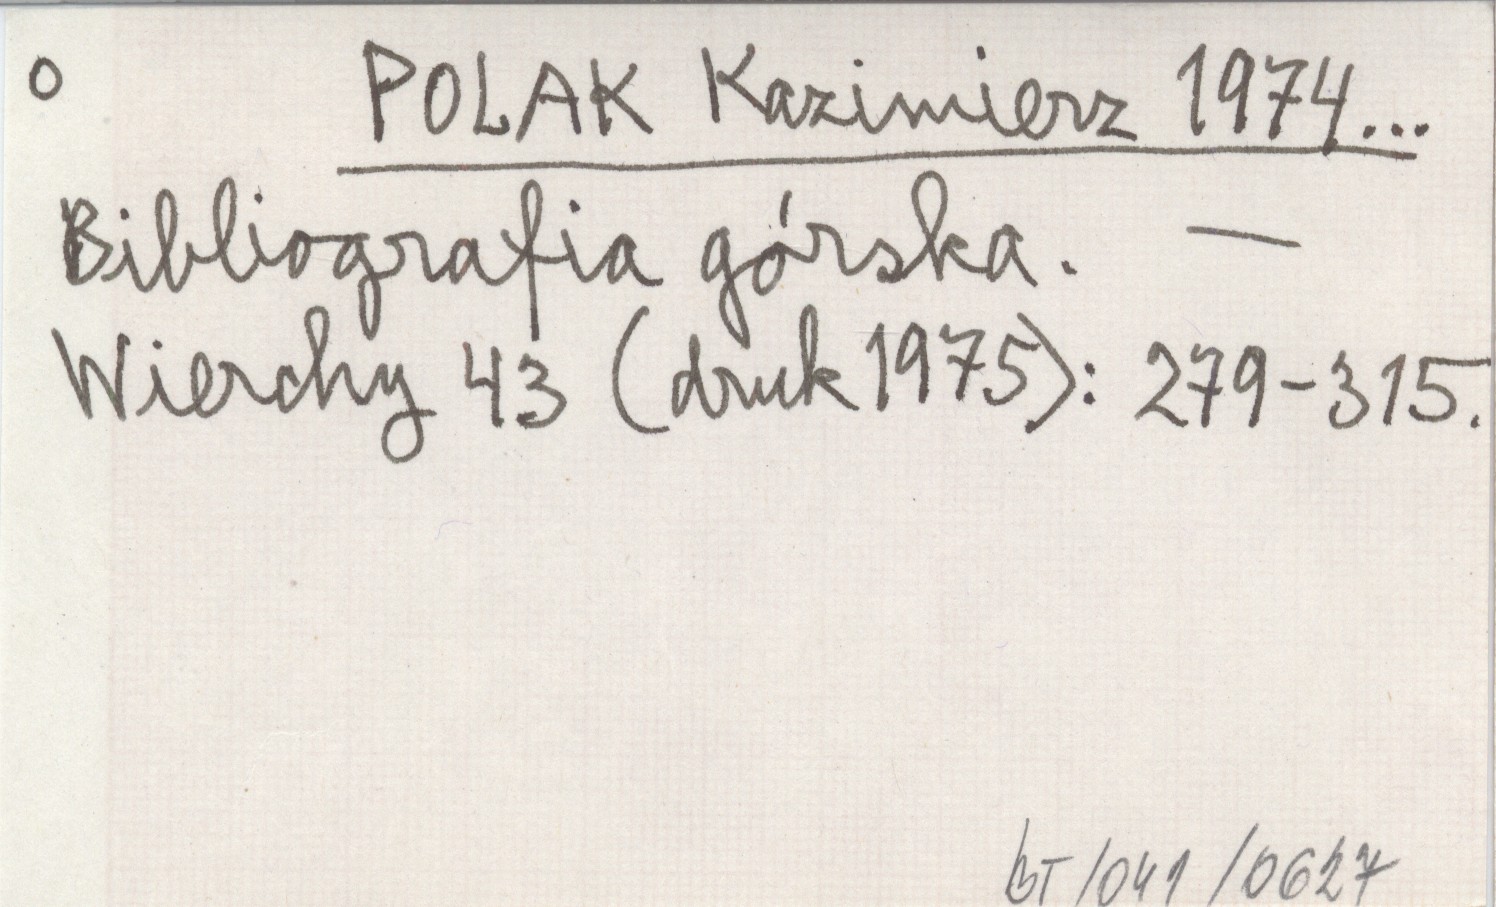 o POLAK Kazimierz 1974...
Bibliografia górska. —
Wierchy 43 (druk 1975): 279-315.
bT/041/0627